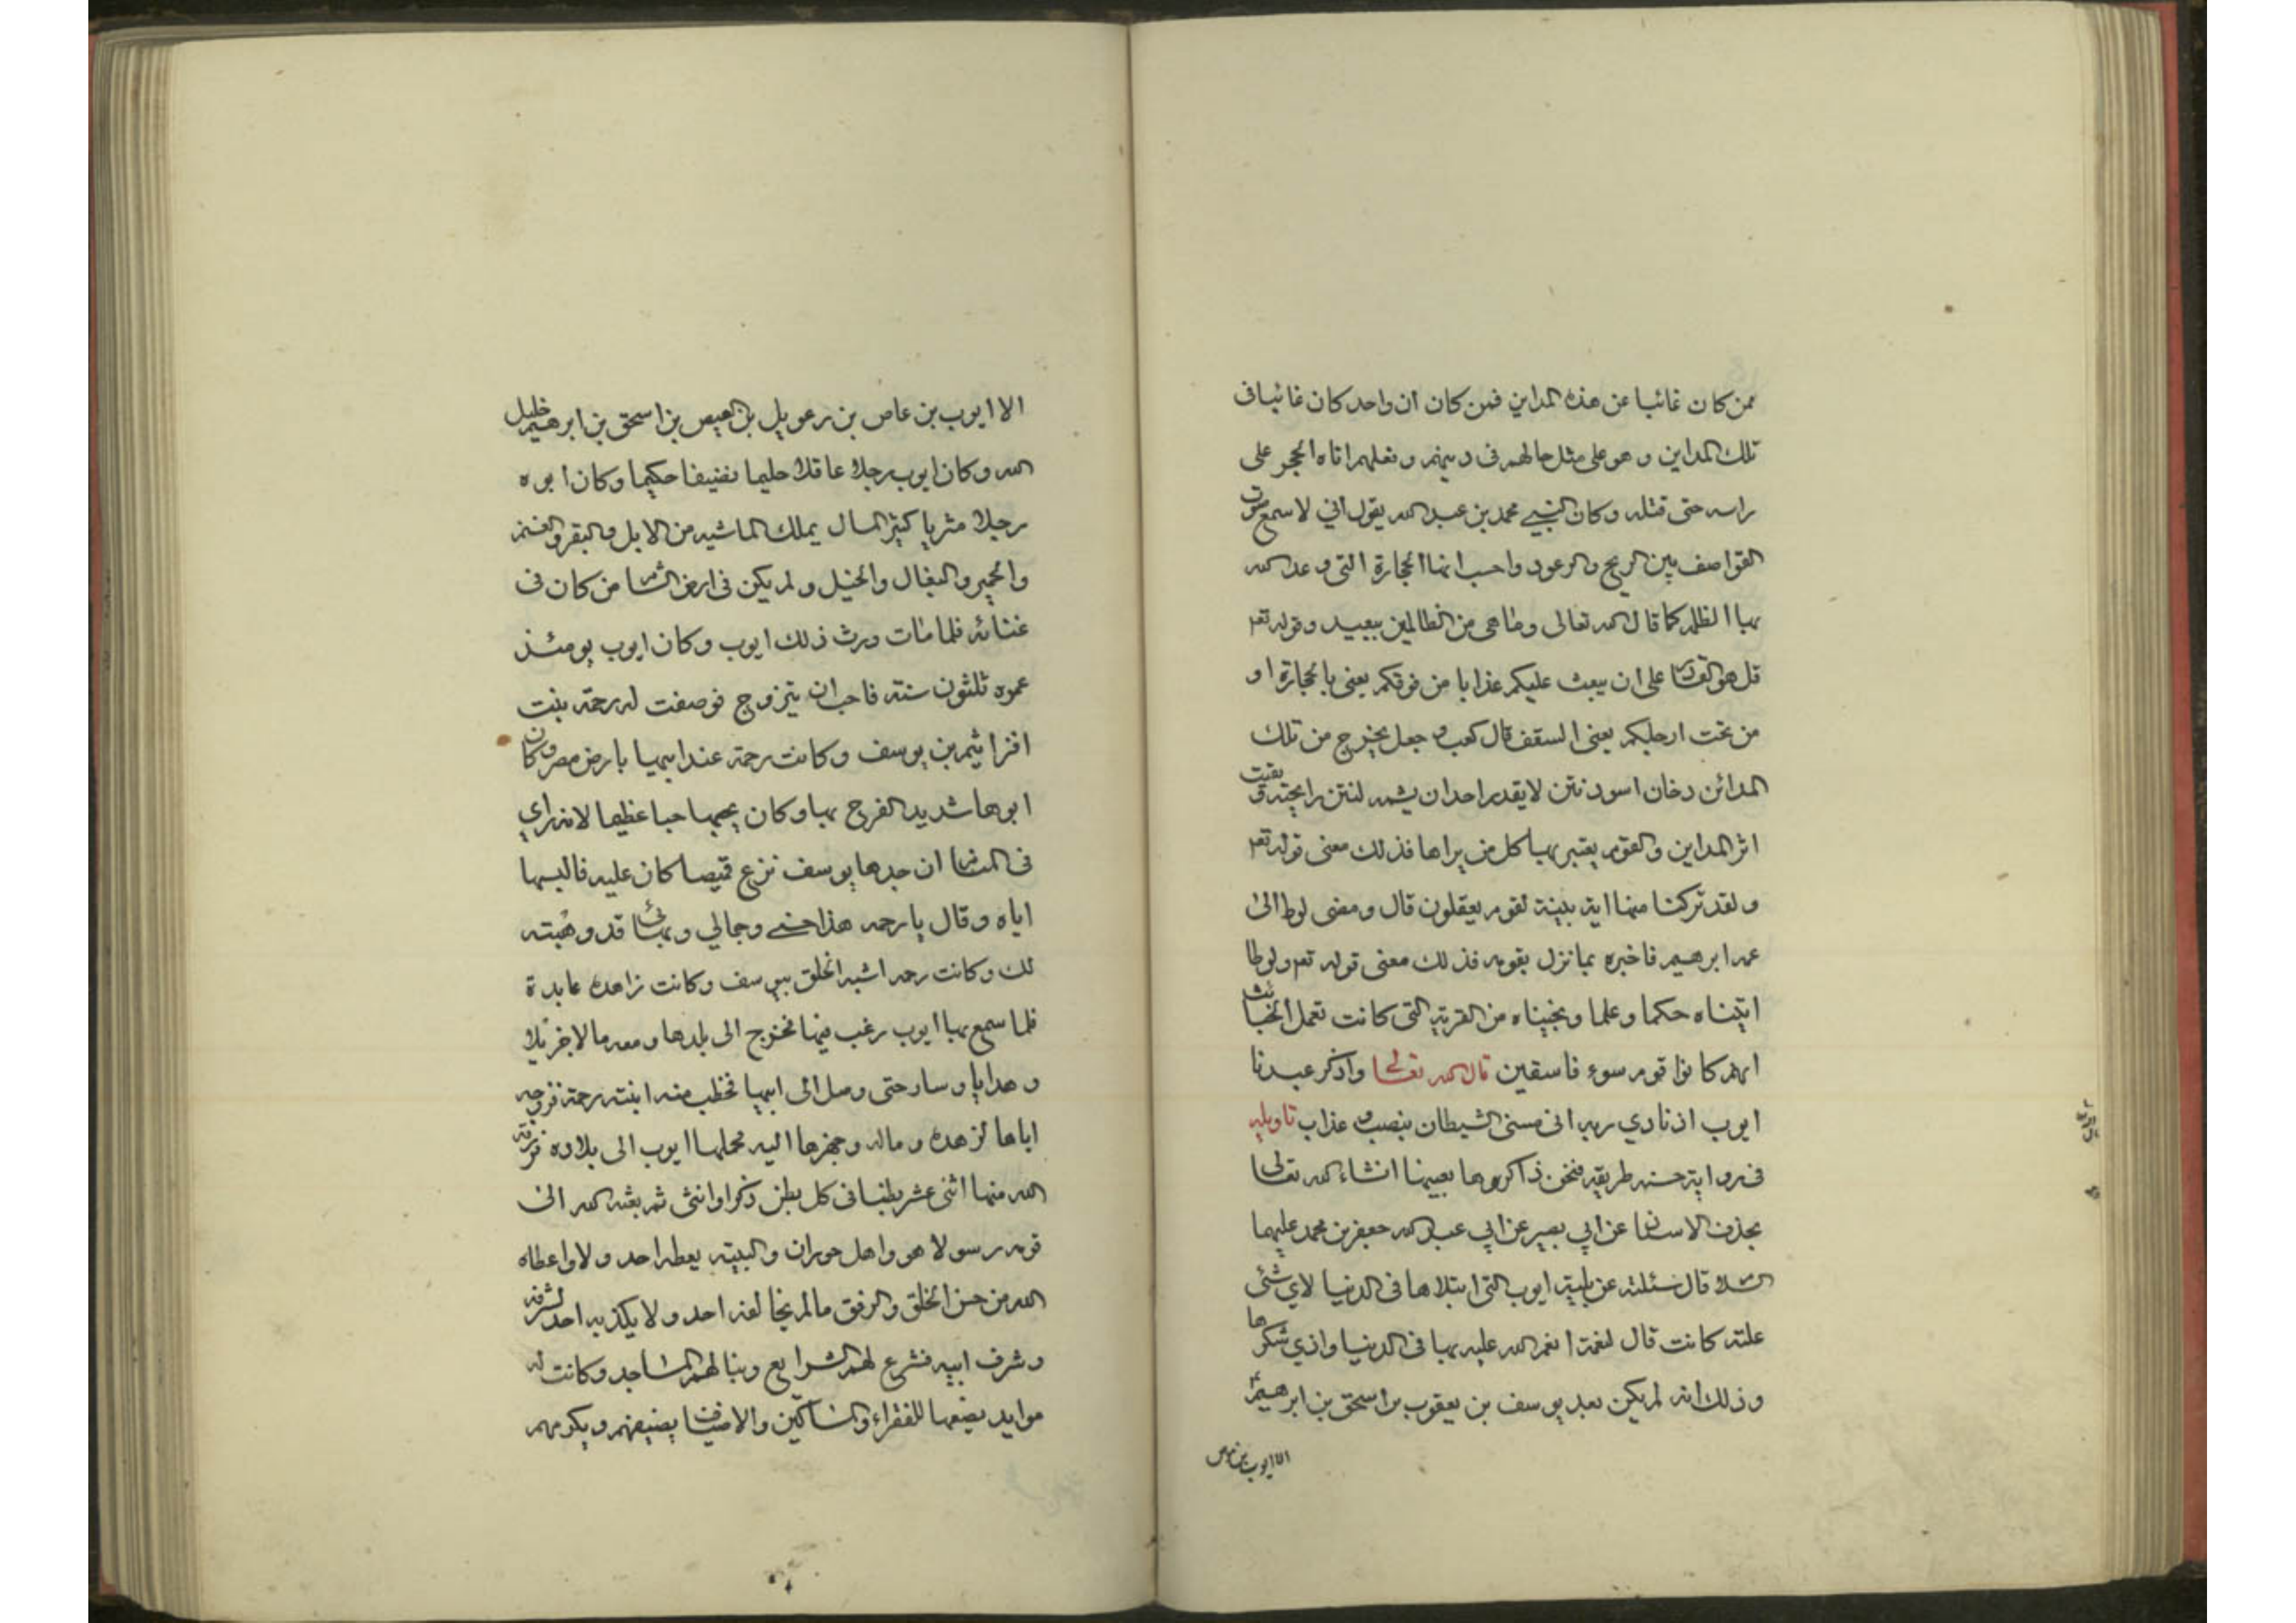 ممن كان غائبا عن هذه المداين فمن كان ان واحد كان غائبا فى
تلك المداين وهو على مثل حالهم فى دينهم وفعلهم اتاه الحجر على
راسه حتى قتله وكان النبي محمد بن عبد الله يقول اني لاسمع صوت
القواصف بين الريح والرعود واحسب انها الحجارة التى وعد الله
بها الظلمه كما قال الله تعالى وما هى من الظالمين ببعيد وقوله تعم
قل هو القادر على ان يبعث عليكم عذابا من فوقكم يعنى بالحجارة او
من تحت ارجلكم يعنى السقف قال كعب وجعل يخرج من تلك
المدائن دخان اسود نتن لا يقدر احد ان يشمه لنتن رايحته وبقيت
اثر المداين والقوم يعتبر بها كل من يراها فذلك معنى قوله تعم
ولقد تركنا منها اية بينة لقوم يعقلون قال ومضى لوط الى
عمه ابرهيم فاخبره بما نزل بقومه فذلك معنى قوله تعم ولوطا
اتيناه حكما وعلما ونجيناه من القرية التى كانت تعمل الخبائث
انهم كانوا قوم سوء فاسقين قال الله تعالى واذكر عبدنا
ايوب اذ نادي ربه انى مسنى الشيطان بنصب وعذاب تاويله
فى رواية حسنه طريقه فنحن ذاكروها بعينها انشاء الله تعالى
بحذف الاسناد عن ابي بصير عن ابي عبد الله جعفر بن محمد عليهما
السلام قال سئلته عن بلية ايوب التى ابتلاها فى الدنيا لاي شئ
علته كانت قال لنعمة انعم الله عليه بها فى الدنيا وادي شكرها
وذلك انه لم يكن بعد يوسف بن يعقوب بن اسحق بن ابرهيم
الا ايوب بن عاص
الا ايوب بن عاص بن رعويل بن العيص بن اسحق بن ابرهيم خليل
الله وكان ايوب رجلا عاقلا حليما نضيفا حكيما وكان ابوه
رجلا مثريا كثير المال يملك الماشيه من الابل والبقر والغنم
والحمير والبغال والخيل ولم يكن فى ارض الشام من كان فى
غنائه فلما مات ورث ذلك ايوب وكان ايوب يومئذ
عمره ثلثون سنة فاحب ان يتزوج فوصفت له رحمة بنت
افرائيم بن يوسف وكانت رحمة عند ابيها بارض مصر وكان
ابوها شديد الفرح بها وكان يحبها حبا عظيما لانه راي
فى المنام ان جدها يوسف نزع قميصا كان عليه فالبسها
اياه وقال يا رحمه هذا حسني وجمالي وبهائي قد وهبته
لك وكانت رحمه اشبه الخلق بيوسف وكانت زاهدة عابدة
فلما سمع بها ايوب رغب فيها فخرج الى بلدها ومعه مالا جزيلا
وهدايا وسار حتى وصل الى ابيها فخطب منه ابنته رحمة فزوجه
اياها لزهده وماله وجهزها اليه فحملها ايوب الى بلاده فرزقه
الله منها اثنى عشر بطنا فى كل بطن ذكرا وانثى ثم بعثه الله الى
قومه رسولا هو واهل حوران والبثنه يعطه احد ولا واعطاه
الله من حسن الخلق والرفق ما لم يخالفه احد ولا يكذبه احد لشرفه
وشرف ابيه فشرع لهم الشرايع وبنا لهم المساجد وكانت له
موايد يضعها للفقراء والمساكين والاضياف يضيفهم ويكرمهم